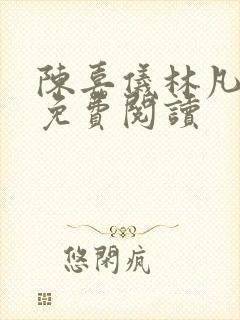 陳喜儀林凡
免費閱讀
悠閑瘋